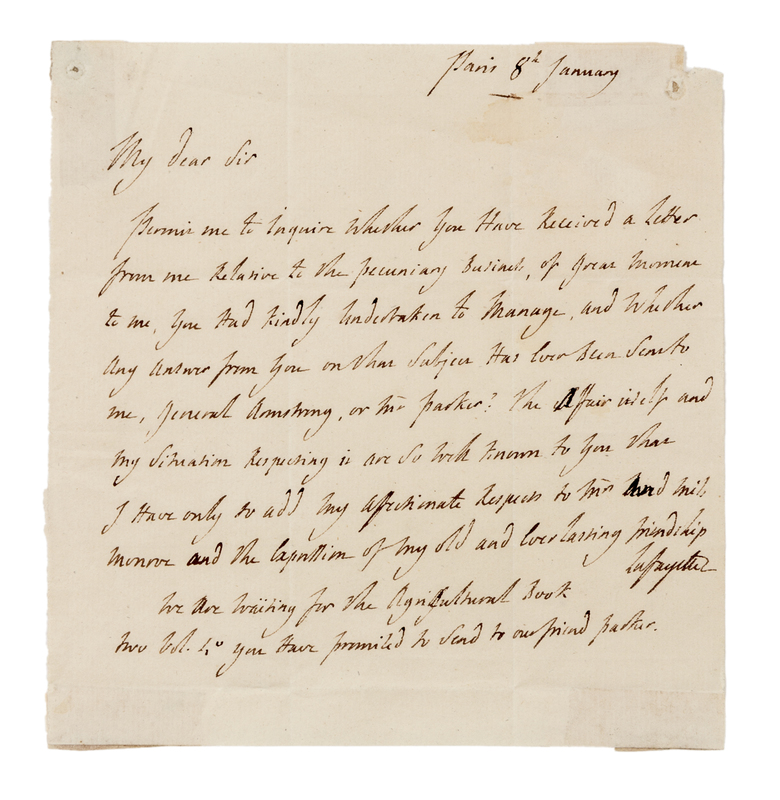 Paris 8th January
My dear Sir
Permit me to Inquire Whether You Have Received a letter
from me Relative to the pecuniary Business, of great moment
to me, You Had Kindly Undertaken to Manage, and Whether
Any Answer from You on that Subject Has Ever Been Sent to
me, General Armstrong, or Mr parker? The Affair itself and
my Situation Respecting it are So Well Known to You that
I Have only to add My affectionate Respects to Mrs And Miss
Monroe and the Expression of My old and Everlasting friendship
Lafayette
We Are Waiting for the Agricultural Book
two Vol. 4o you Have promised to Send to our friend parker.